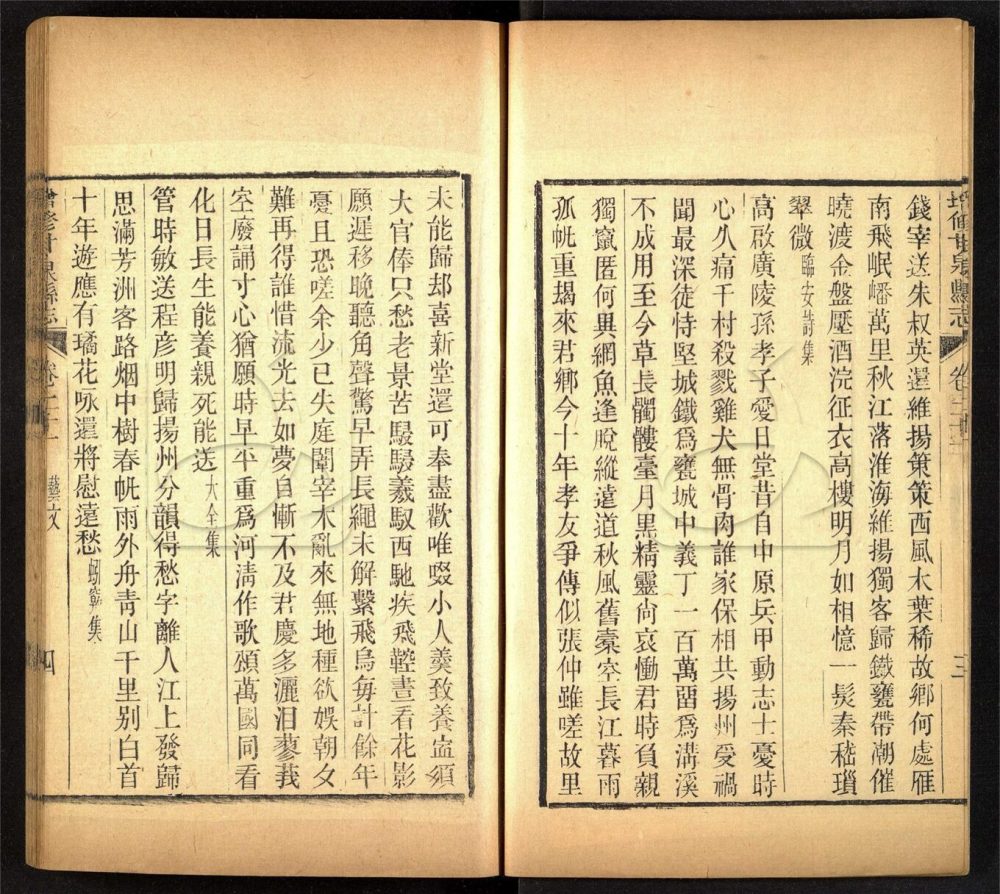 錢宰送朱叔英還維揚策策西風木葉稀故鄉何處雁
南飛岷嶓萬里秋江落淮海維揚獨客歸鐵甕帶潮催
曉渡金盤壓酒浣征衣高樓明月如相憶一髮秦嵇瑣
翠微臨安詩集
高啟廣陵孫孝子愛日堂昔自中原兵甲動志士憂時
心久痛千村殺戮雞犬無骨肉誰家保相共揚州受禍
聞最深徒恃堅城鐵爲甕城中義丁一百萬留爲溝溪
不成用至今草長髑髏臺月黑精靈尙哀慟君時負親
獨竄匿何異網魚逢脫縱遠道秋風舊橐空長江暮雨
孤帆重朅來君鄉今十年孝友爭傳似張仲雖嗟故里
未能歸却喜新堂還可奉盡歡唯啜小人羹致養寍須
大官俸只愁老景苦駸駸羲馭西馳疾飛鞚晝看花影
願遲移晚聽角聲驚早弄長繩未解繫飛烏每計餘年
憂且恐嗟余少已失庭闈宰木亂來無地種欲娛朝夕
難再得誰惜流光去如夢自慚不及君慶多灑泪蓼莪
空廢誦寸心猶願時早平重爲河淸作歌頌萬國同看
化日長生能養親死能送大全集
管時敏送程彦明歸揚州分韻得愁字離人江上發歸
思滿芳洲客路烟中樹春帆雨外舟靑山千里别白首
十年遊應有璚花咏還將慰遠愁蚓竅集
增修甘泉縣志 卷二十 藝文 四